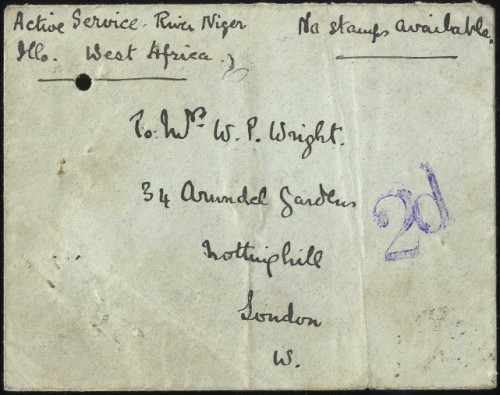 Active Service. River Niger
Illo. West Africa.
No stamps available.
To. Mrs W. P. Wright.
34 Arundel Gardens
Nottinghill
London
W.
2d